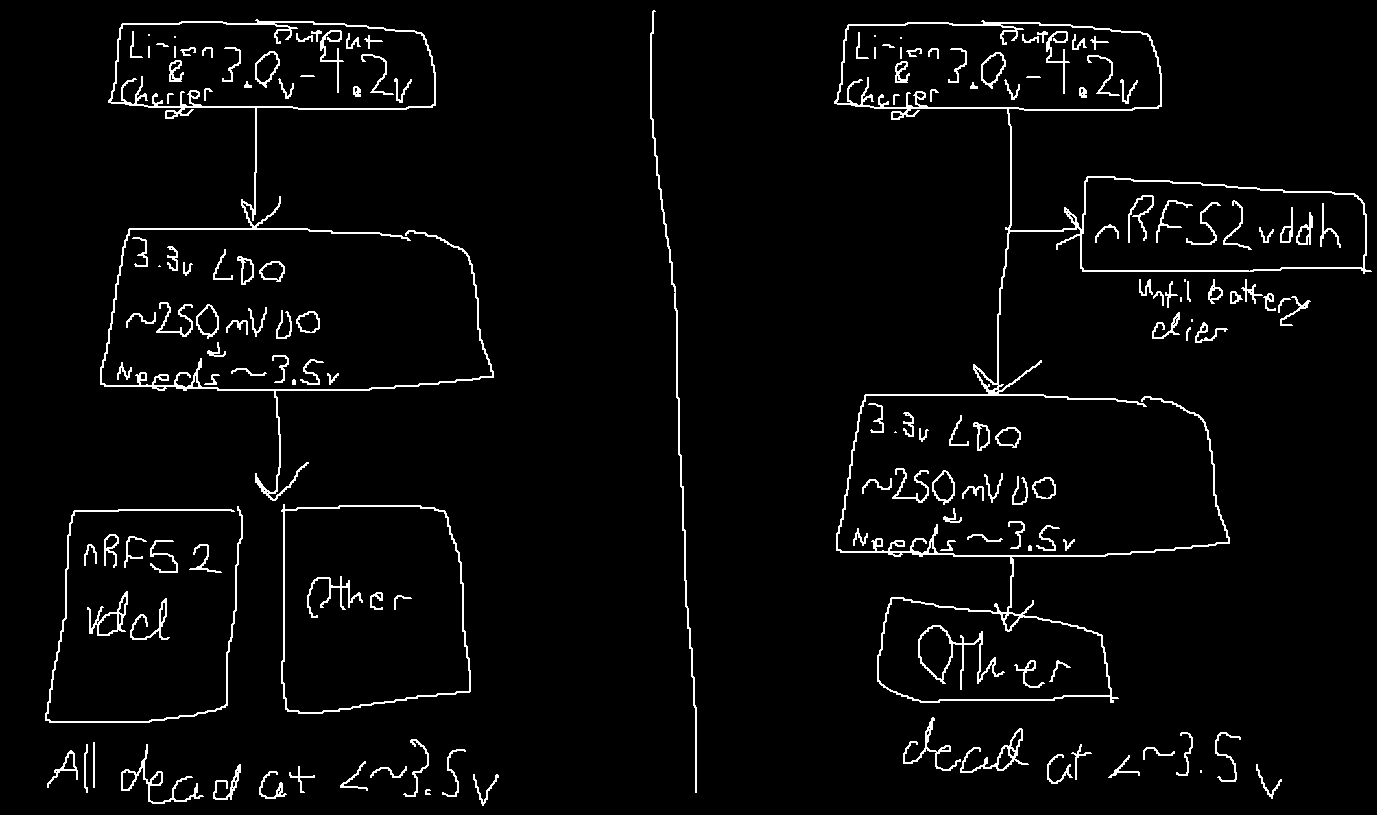 Li-ion output
& 3.0v-4.2v
Charger
3.3v LDO
~250mV DO
Needs ~3.5v
nRF52
vdd
Other
All dead at <~3.5v
Li-ion output
& 3.0v-4.2v
Charger
nRF52 vddh
until battery
dies
3.3v LDO
~250mV DO
Needs ~3.5v
Other
dead at <~3.5v